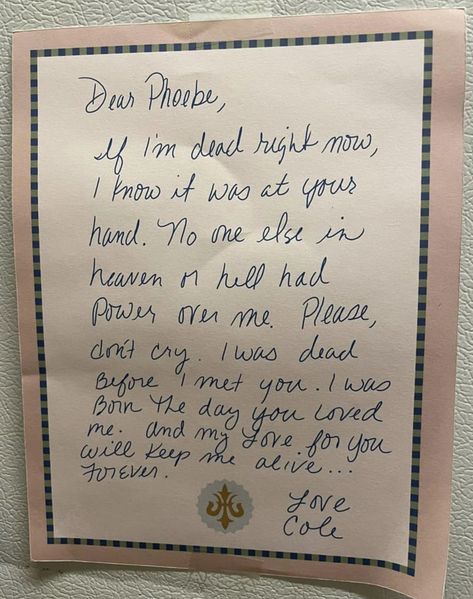 Dear Phoebe,
If I'm dead right now,
I know it was at your
hand. No one else in
heaven or hell had
Power over me. Please,
don't cry. I was dead
Before I met you. I was
Born The day you loved
me. and my Love for you
will keep me alive...
Forever.
Love
Cole